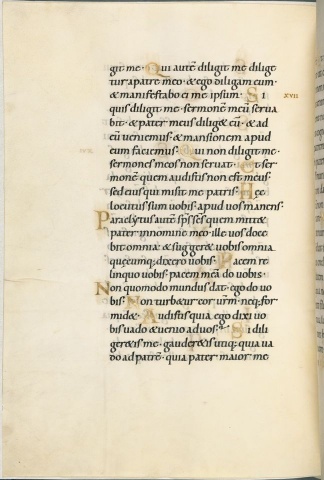 git me· Qui autē diligit me dilige
tur a patre meo· & ego diligam eum·
& manifestabo ei me ipsum· Si
XVII
quis diligit me· sermonē meū serva
bit· & pater meus dilig& eū· & ad
eū veniemus· & mansionem apud
eum faciemus· Qui non diligit me·
sermones meos non servat· Et ser
monē quem audistis non est meus·
sed eius qui misit me patris· Hęc
locutus sum vobis· apud vos manens·
Paraclytus autē sp̄s sc̄s quem mitt&
pater in nomine meo· ille vos doce
bit omnia· & sugger& vobis omnia
quęcumq; dixero vobis· Pacem re
linquo vobis· pacem meā do vobis·
Non quomodo mundus dat· ego do vo
bis· Non turb&ur cor vr̄m· neq; for
mid&· Audistis quia ego dixi vo
bis· vado & venio ad vos· Si dili
ger&is me· gauder&is utiq; quia va
do ad patrē· quia pater maior me